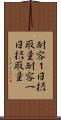 耐容１日摂
取量耐容一
日摂取量